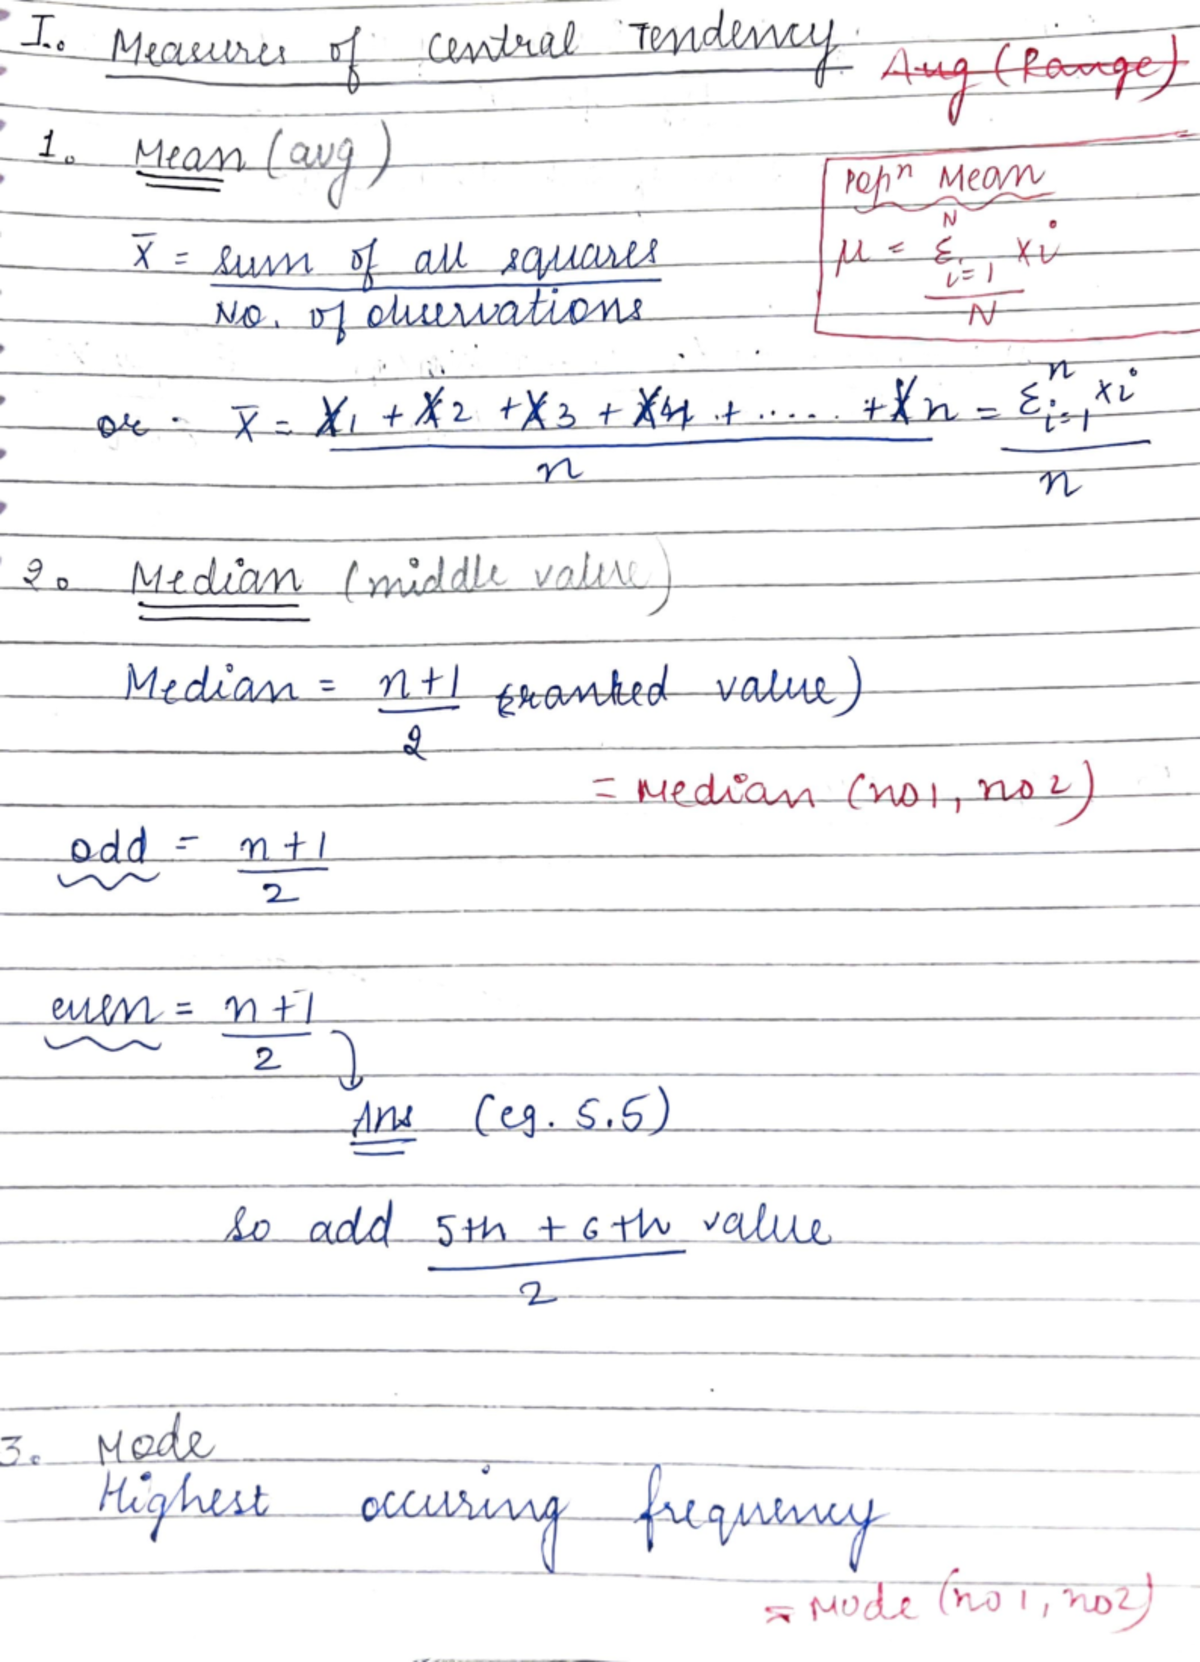 I. Measures of central Tendency. Avg (Range)
1. Mean (avg)
Popn Mean
x̄ = sum of all squares / No. of observations
μ = Σ i=1 N xi / N
or x̄ = X1 + X2 + X3 + X4 + ..... + Xn / n = Σ i=1 n xi / n
2. Median (middle value)
Median = n+1 / 2 (ranked value)
= Median (no1, no2)
odd = n+1 / 2
even = n+1 / 2
Ans (eg. 5.5)
so add 5th + 6th value / 2
3. Mode
Highest occuring frequency
= Mode (no1, no2)